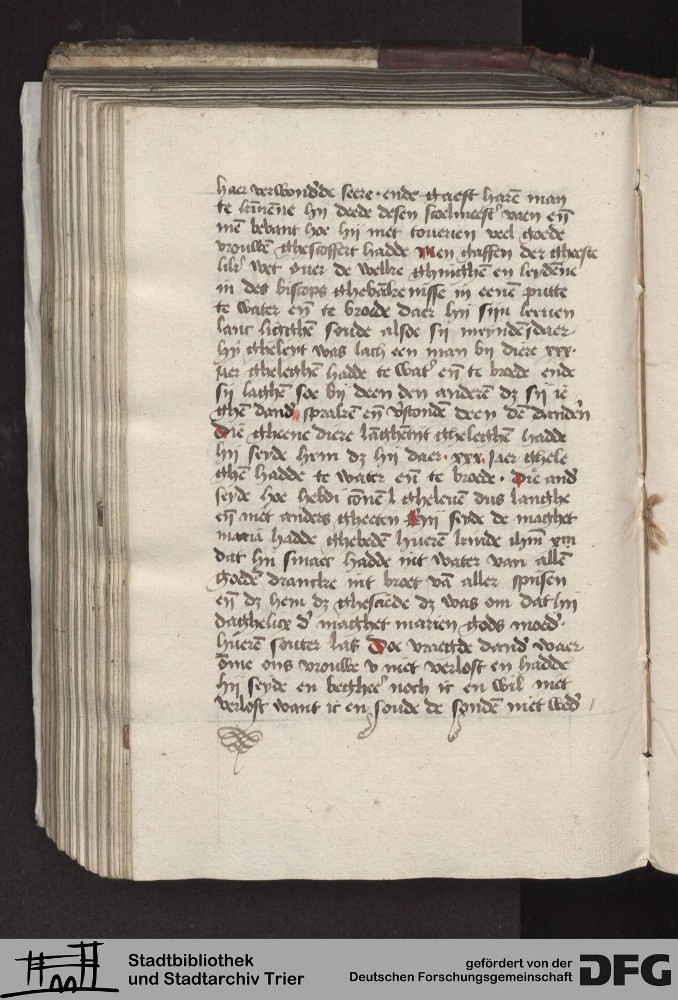 haer verwond'de seere · ende gaest harē man
te kīnēne hij dede desen scolmeest' vaen eñ
mē bevant hoe hij met toveren veel goede
vrouwē ghescoffert hadde Men gaffen der gheeste
lik' wet over de welke ghinghē en leydēne
in des biscops ghevākenisse in eenē putte
te water eñ te broede daer hij sijn leven
lanc ligghē soude alsoe sij inwynden daer
hij gheleyt was lach een man bij diere xxx.
iaer gheleghē hadde te wat' eñ te broede ende
sij laghē soe bij deen den anderē dz sij ie
ghē dand' sprakē eñ v'stondē deen dē dandē
Die gheene diere lāghētijt gheleghē hadde
hij seyde hem dz hij daer · xxx. iaer ghele
ghē hadde te water eñ te broede · Die and'
seyde hoe hebdi cōnē ghelevē dus langhe
eñ niet anders gheeten Hij seyde de maghet
maria hadde ghebedē huerē kinde ihm
dat hij smaec hadde int water van allē
goedē drancke int broet vā aller spijsen
eñ dz hem dz ghesciede dz was om dat hij
daghelicx d' maghet marien gods moed'
huerē souter las Doe vraegde dand' waer
ōme ons vrouwe v niet verlost en hadde
hij seyde en begheer' noch ic en wil niet
verlost want ic en soude de sondē niet wed'
Stadtbibliothek
und Stadtarchiv Trier
gefördert von der
Deutschen Forschungsgemeinschaft
DFG